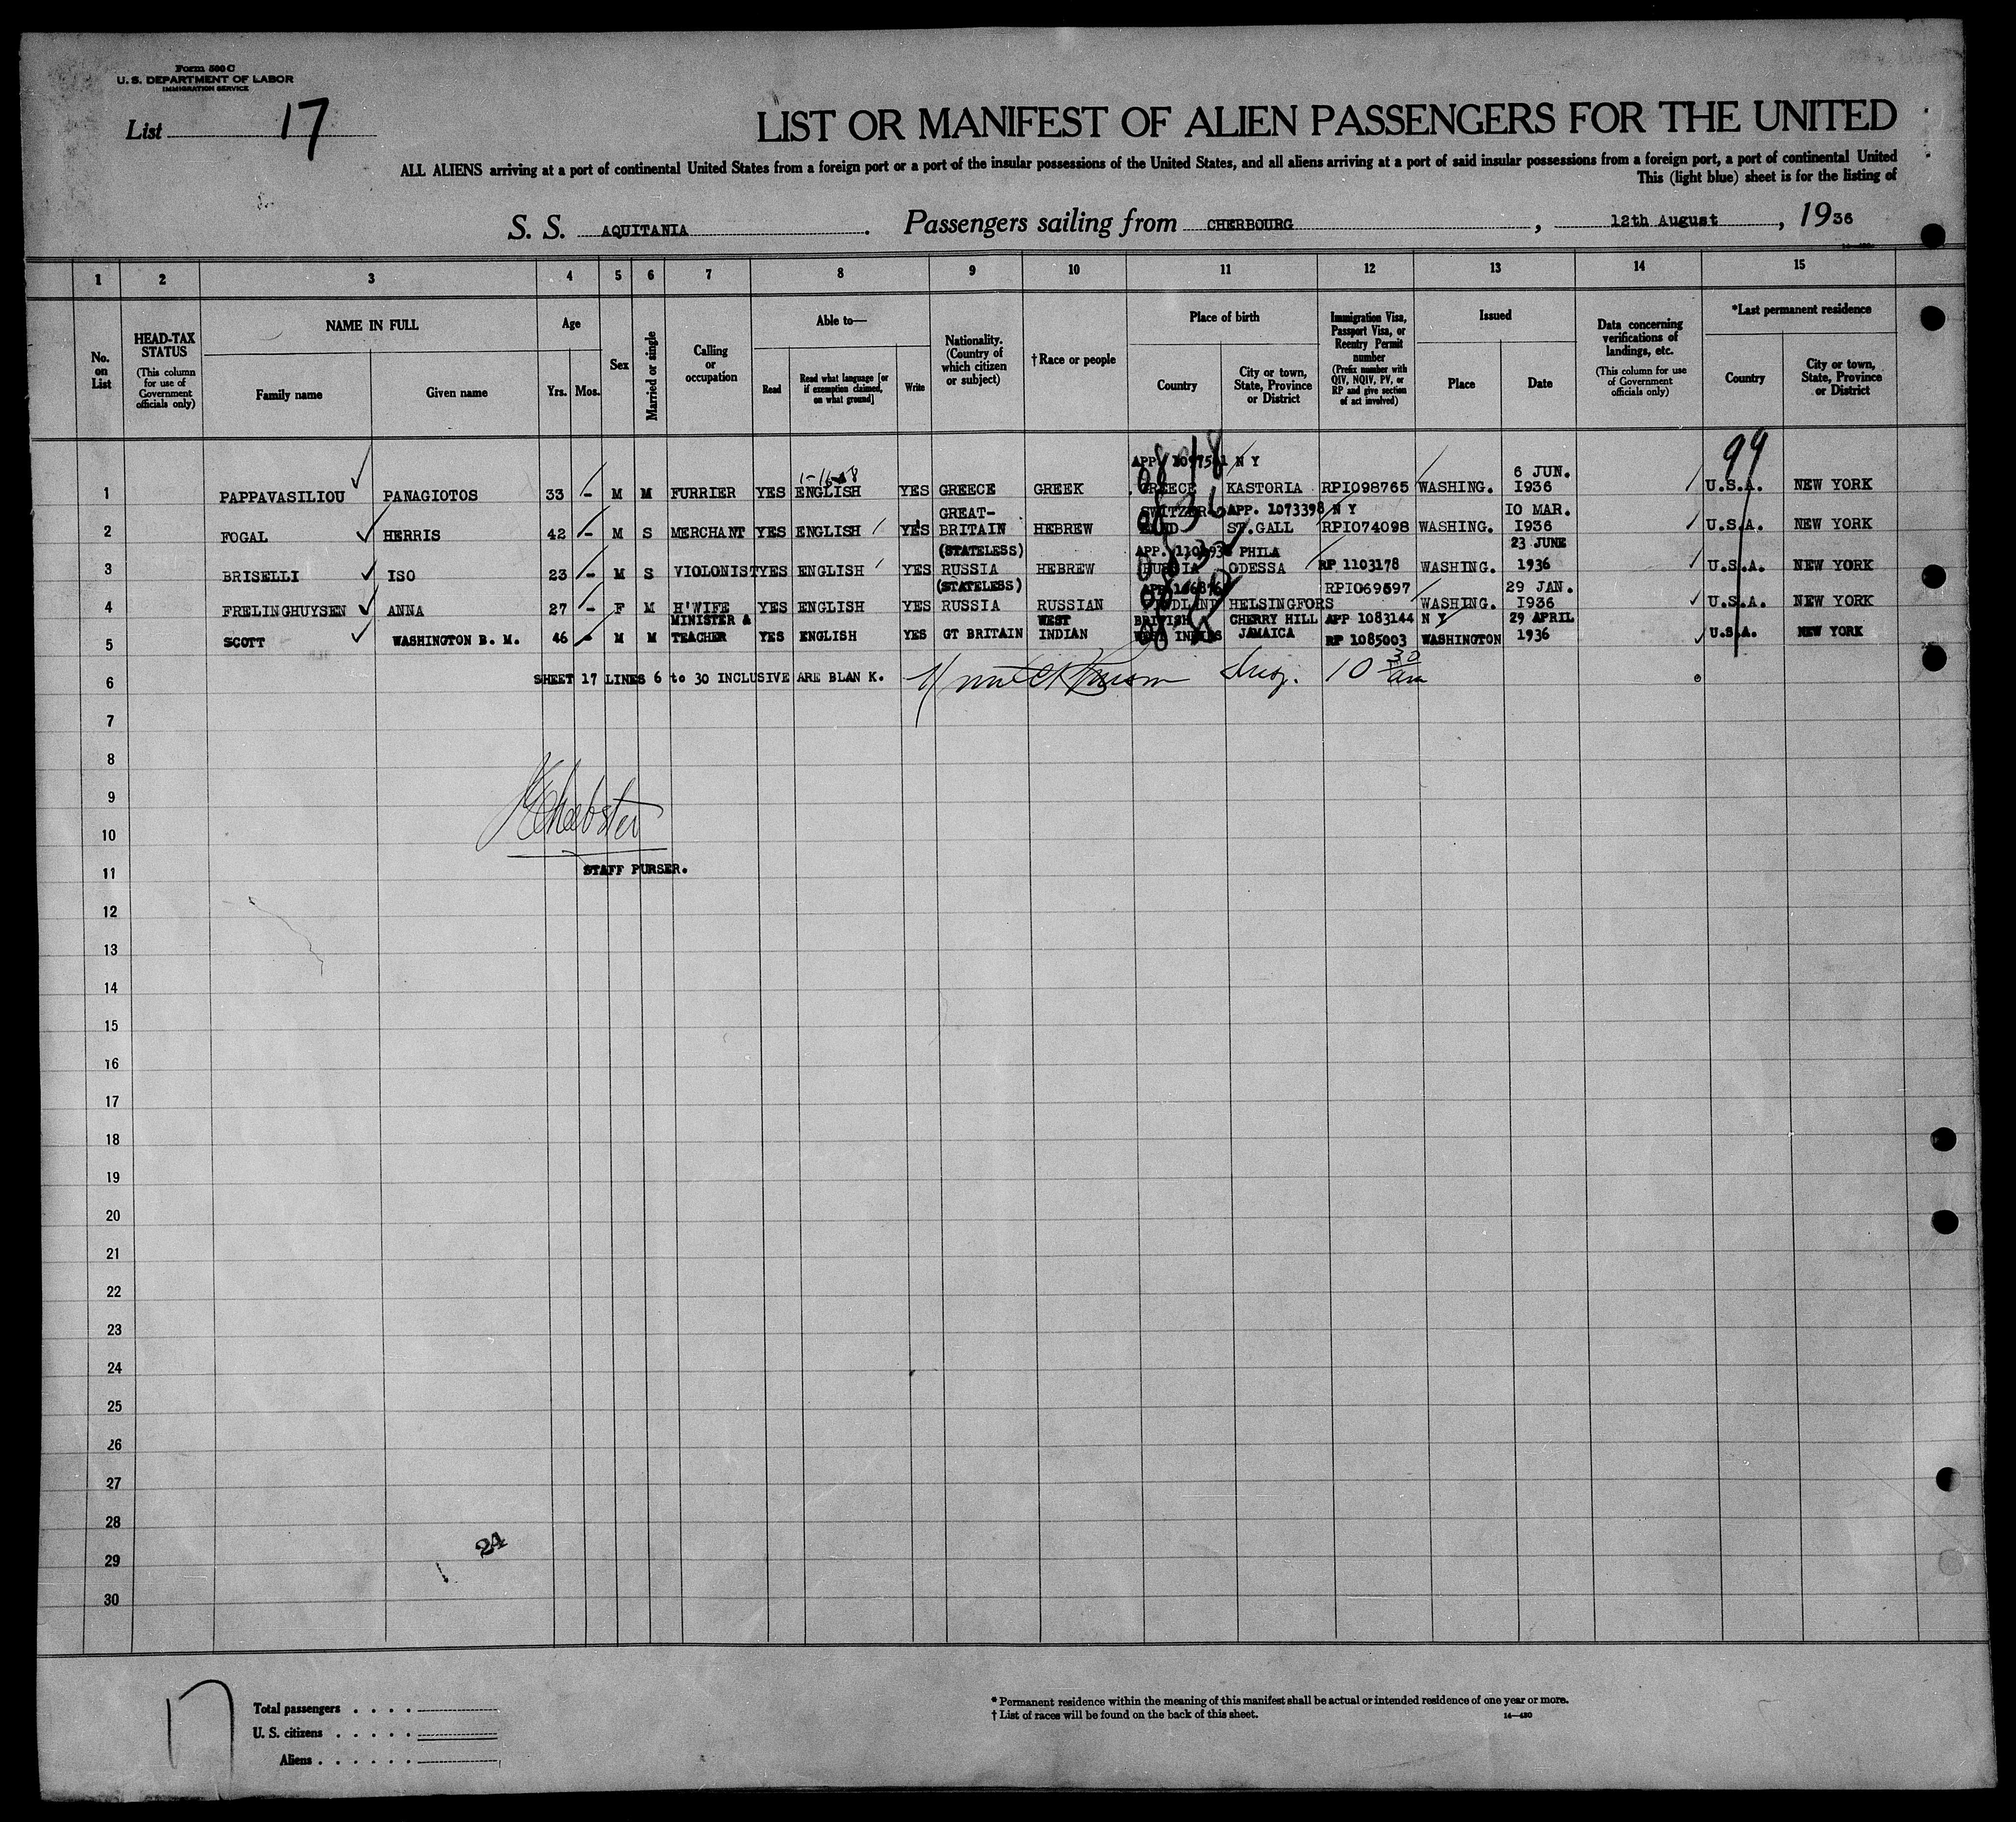 Form 500 C
U. S. DEPARTMENT OF LABOR
IMMIGRATION SERVICE
List 17
LIST OR MANIFEST OF ALIEN PASSENGERS FOR THE UNITED
ALL ALIENS arriving at a port of continental United States from a foreign port or a port of the insular possessions of the United States, and all aliens arriving at a port of said insular possessions from a foreign port, a port of continental United
This (light blue) sheet is for the listing of
S. S. AQUITANIA. Passengers sailing from CHERBOURG, 12th August, 1936
1 2 3 4 5 6 7 8 9 10 11 12 13 14 15
No. on List
HEAD-TAX STATUS
(This column for use of Government officials only)
NAME IN FULL
Family name
Given name
Age
Yrs. Mos.
Sex
Married or single
Calling or occupation
Able to—
Read
Read what language [or if exemption claimed, on what ground]
Write
Nationality. (Country of which citizen or subject)
† Race or people
Place of birth
Country
City or town, State, Province or District
Immigration Visa, Passport Visa, or Reentry Permit number
(Prefix number with QIV, NQIV, PV, or RP and give section of act involved)
Issued
Place
Date
Data concerning verifications of landings, etc.
(This column for use of Government officials only)
*Last permanent residence
Country
City or town, State, Province or District
99
APP. N Y
6 JUN.
1 PAPPAVASILIOU PANAGIOTOS 33 - M M FURRIER YES ENGLISH YES GREECE GREEK GREECE KASTORIA RPI098765 WASHING. I936 U.S.A. NEW YORK
GREAT- SWITZER- APP. 1073398 N Y IO MAR.
2 FOGAL HERRIS 42 - M S MERCHANT YES ENGLISH YES BRITAIN HEBREW LAND ST.GALL RPI074098 WASHING. I936 U.S.A. NEW YORK
(STATELESS) APP. PHILA 23 JUNE
3 BRISELLI ISO 23 - M S VIOLONIST YES ENGLISH YES RUSSIA HEBREW RUSSIA ODESSA RP 1103178 WASHING. 1936 U.S.A. NEW YORK
(STATELESS) APP. RPI069597 29 JAN.
4 FRELINGHUYSEN ANNA 27 - F M H'WIFE YES ENGLISH YES RUSSIA RUSSIAN HELSINGFORS WASHING. I936 U.S.A. NEW YORK
MINISTER & WEST BRITISH CHERRY HILL APP 1083144 N Y 29 APRIL
5 SCOTT WASHINGTON B. M. 46 - M M TEACHER YES ENGLISH YES GT BRITAIN INDIAN WEST INDIES JAMAICA RP 1085003 WASHINGTON 1936 U.S.A. NEW YORK
6 SHEET 17 LINES 6 to 30 INCLUSIVE ARE BLAN K. 10 30 am
7
8
9
10
11 STAFF PURSER.
12
13
14
15
16
17
18
19
20
21
22
23
24
25
26
27
28
24
29
30
17
Total passengers . . . .
U. S. citizens . . . . .
Aliens . . . . . .
* Permanent residence within the meaning of this manifest shall be actual or intended residence of one year or more.
† List of races will be found on the back of this sheet.
14—430